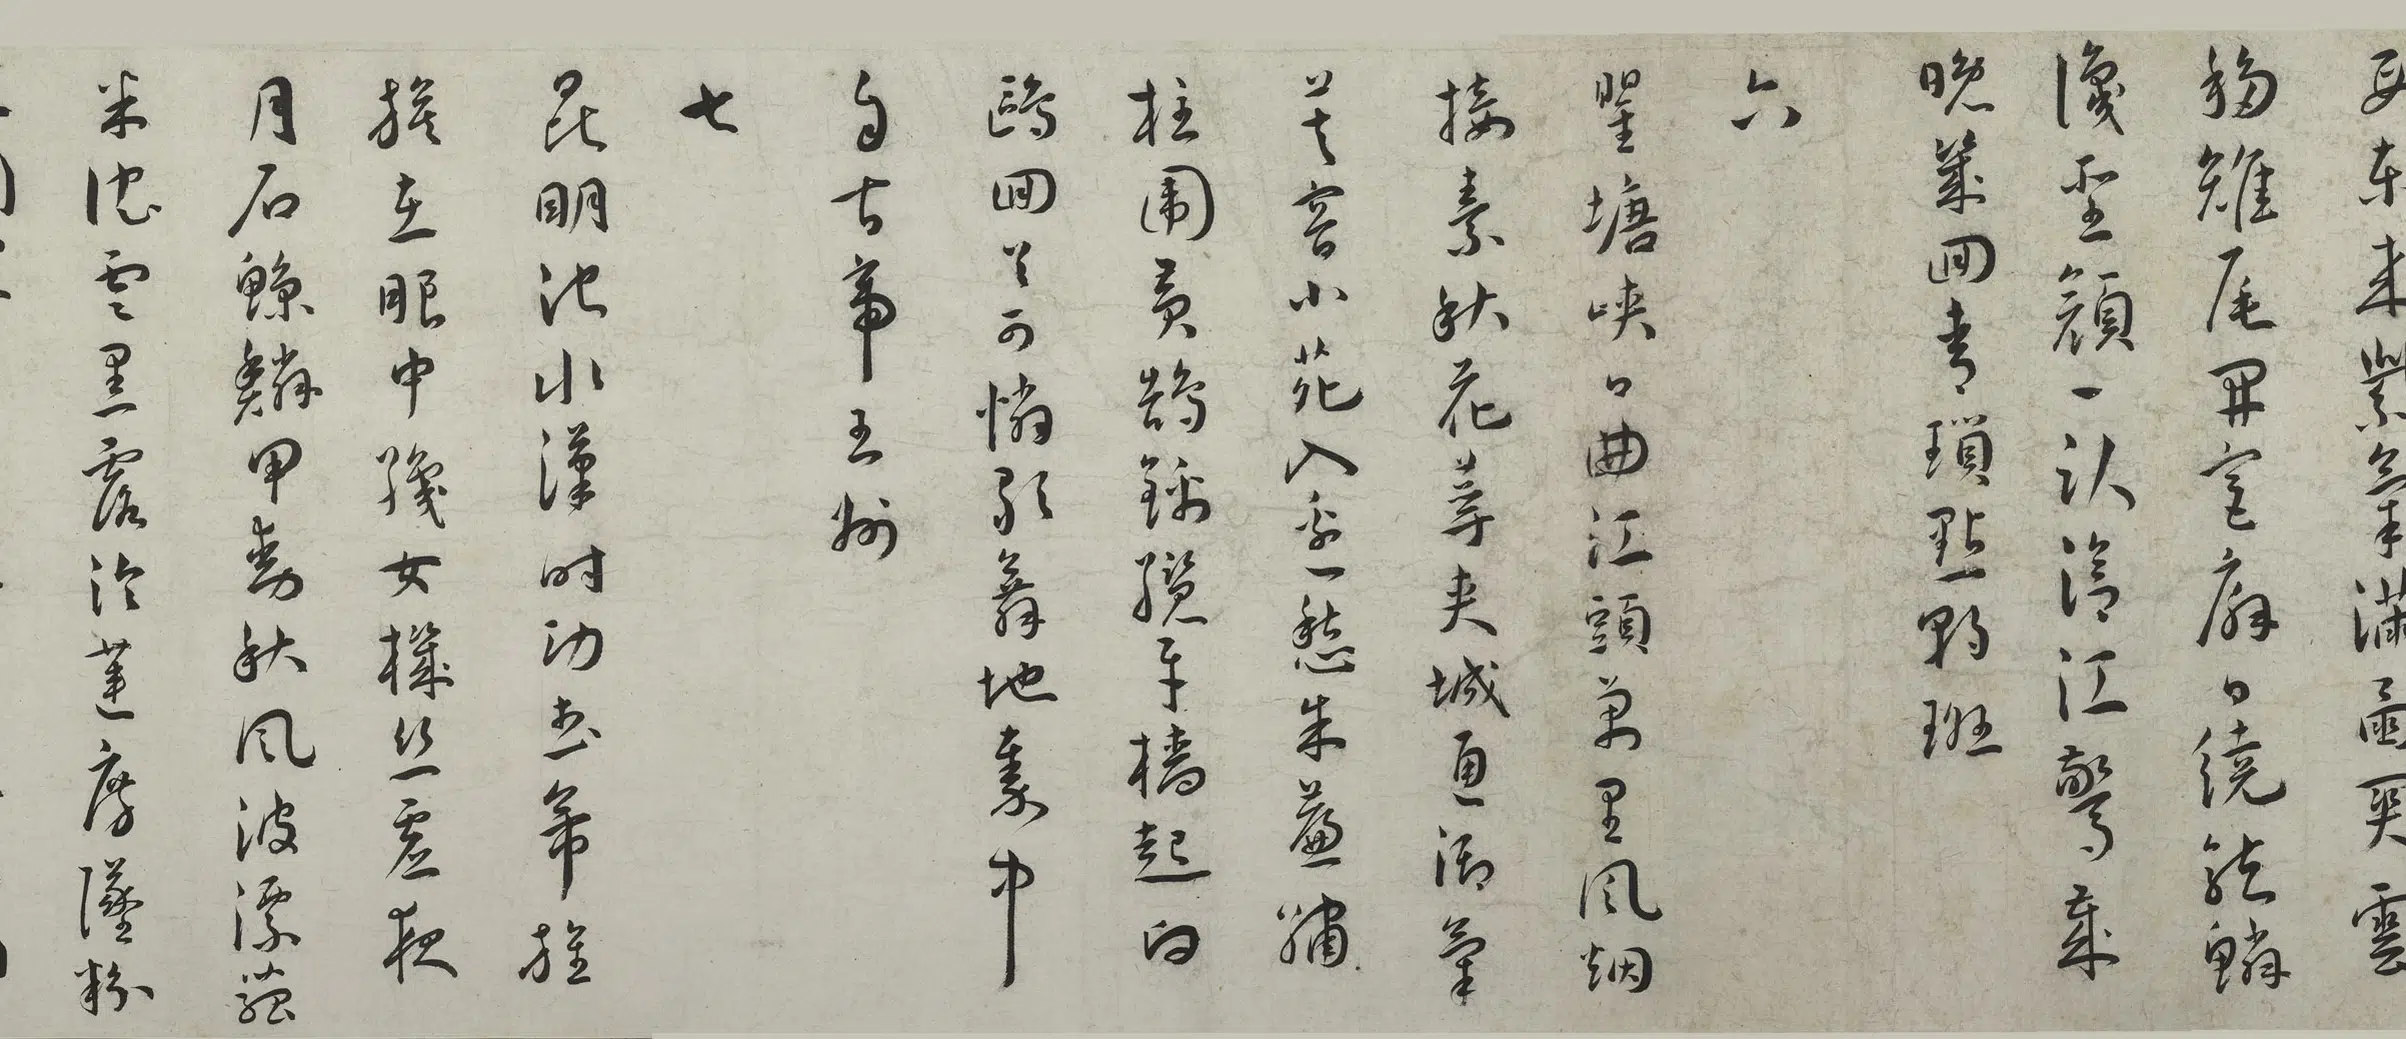 母東來紫氣滿函關雲
移雉尾開宮扇日繞龍鱗
識聖顏一臥滄江驚歲
晚幾回青瑣點朝班
六
瞿塘峽口曲江頭萬里風烟
接素秋花萼夾城通御氣
芙蓉小苑入邊愁朱簾繡
柱圍黃鵠錦纜牙檣起白
鷗回首可憐歌舞地秦中
自古帝王州
七
昆明池水漢時功武帝旌
旗在眼中織女機絲虛夜
月石鯨鱗甲動秋風波漂菰
米沉雲黑露冷蓮房墜粉